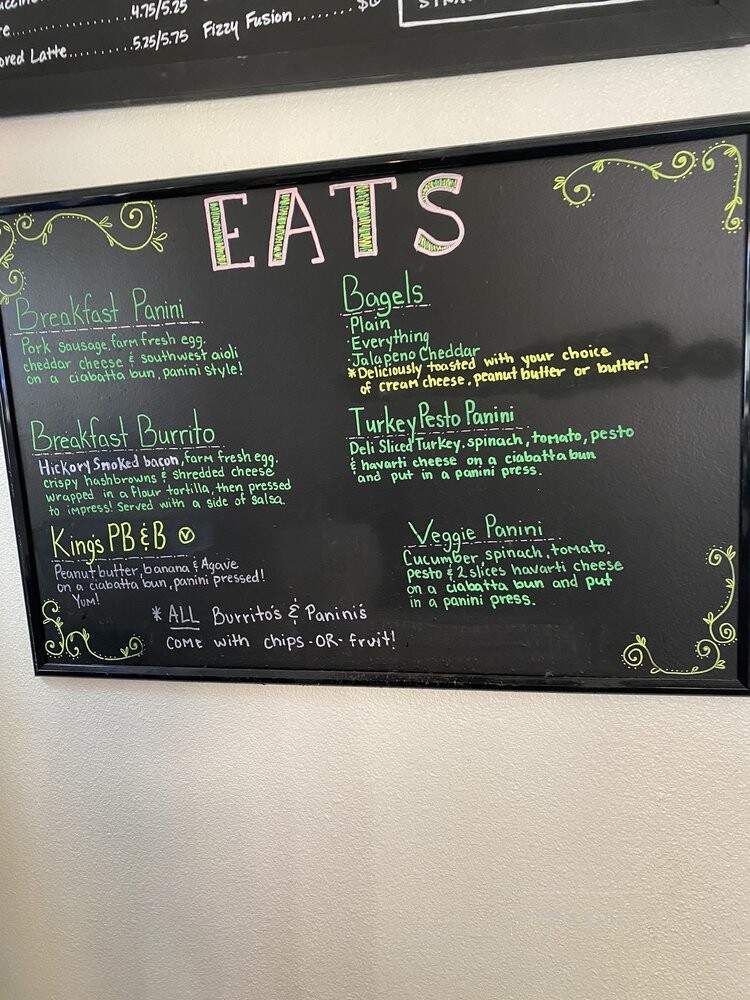 4.75/5.25
Latte..........5.25/5.75
Fizzy Fusion ........
EATS
Breakfast Panini
Pork sausage, farm fresh egg.
cheddar cheese & southwest aioli
on a ciabatta bun, panini style!
Breakfast Burrito
Hickory Smoked bacon, farm fresh egg.
crispy hashbrowns & shredded cheese
wrapped in a flour tortilla, then pressed
to impress! Served with a side of salsa.
King's PB&B Ⓥ
Peanut butter, banana & Agave
on a ciabatta bun, panini pressed!
Yum!
Bagels
·Plain
·Everything
·Jalapeno Cheddar
*Deliciously toasted with your choice
of cream cheese, peanut butter or butter!
Turkey Pesto Panini
Deli Sliced Turkey, spinach, tomato, pesto
& havarti cheese on a ciabatta bun
and put in a panini press.
Veggie Panini
Cucumber, spinach, tomato,
pesto & 2 slices havarti cheese
on a ciabatta bun and put
in a panini press.
* ALL Burrito's & Panini's
come with chips -OR- fruit!